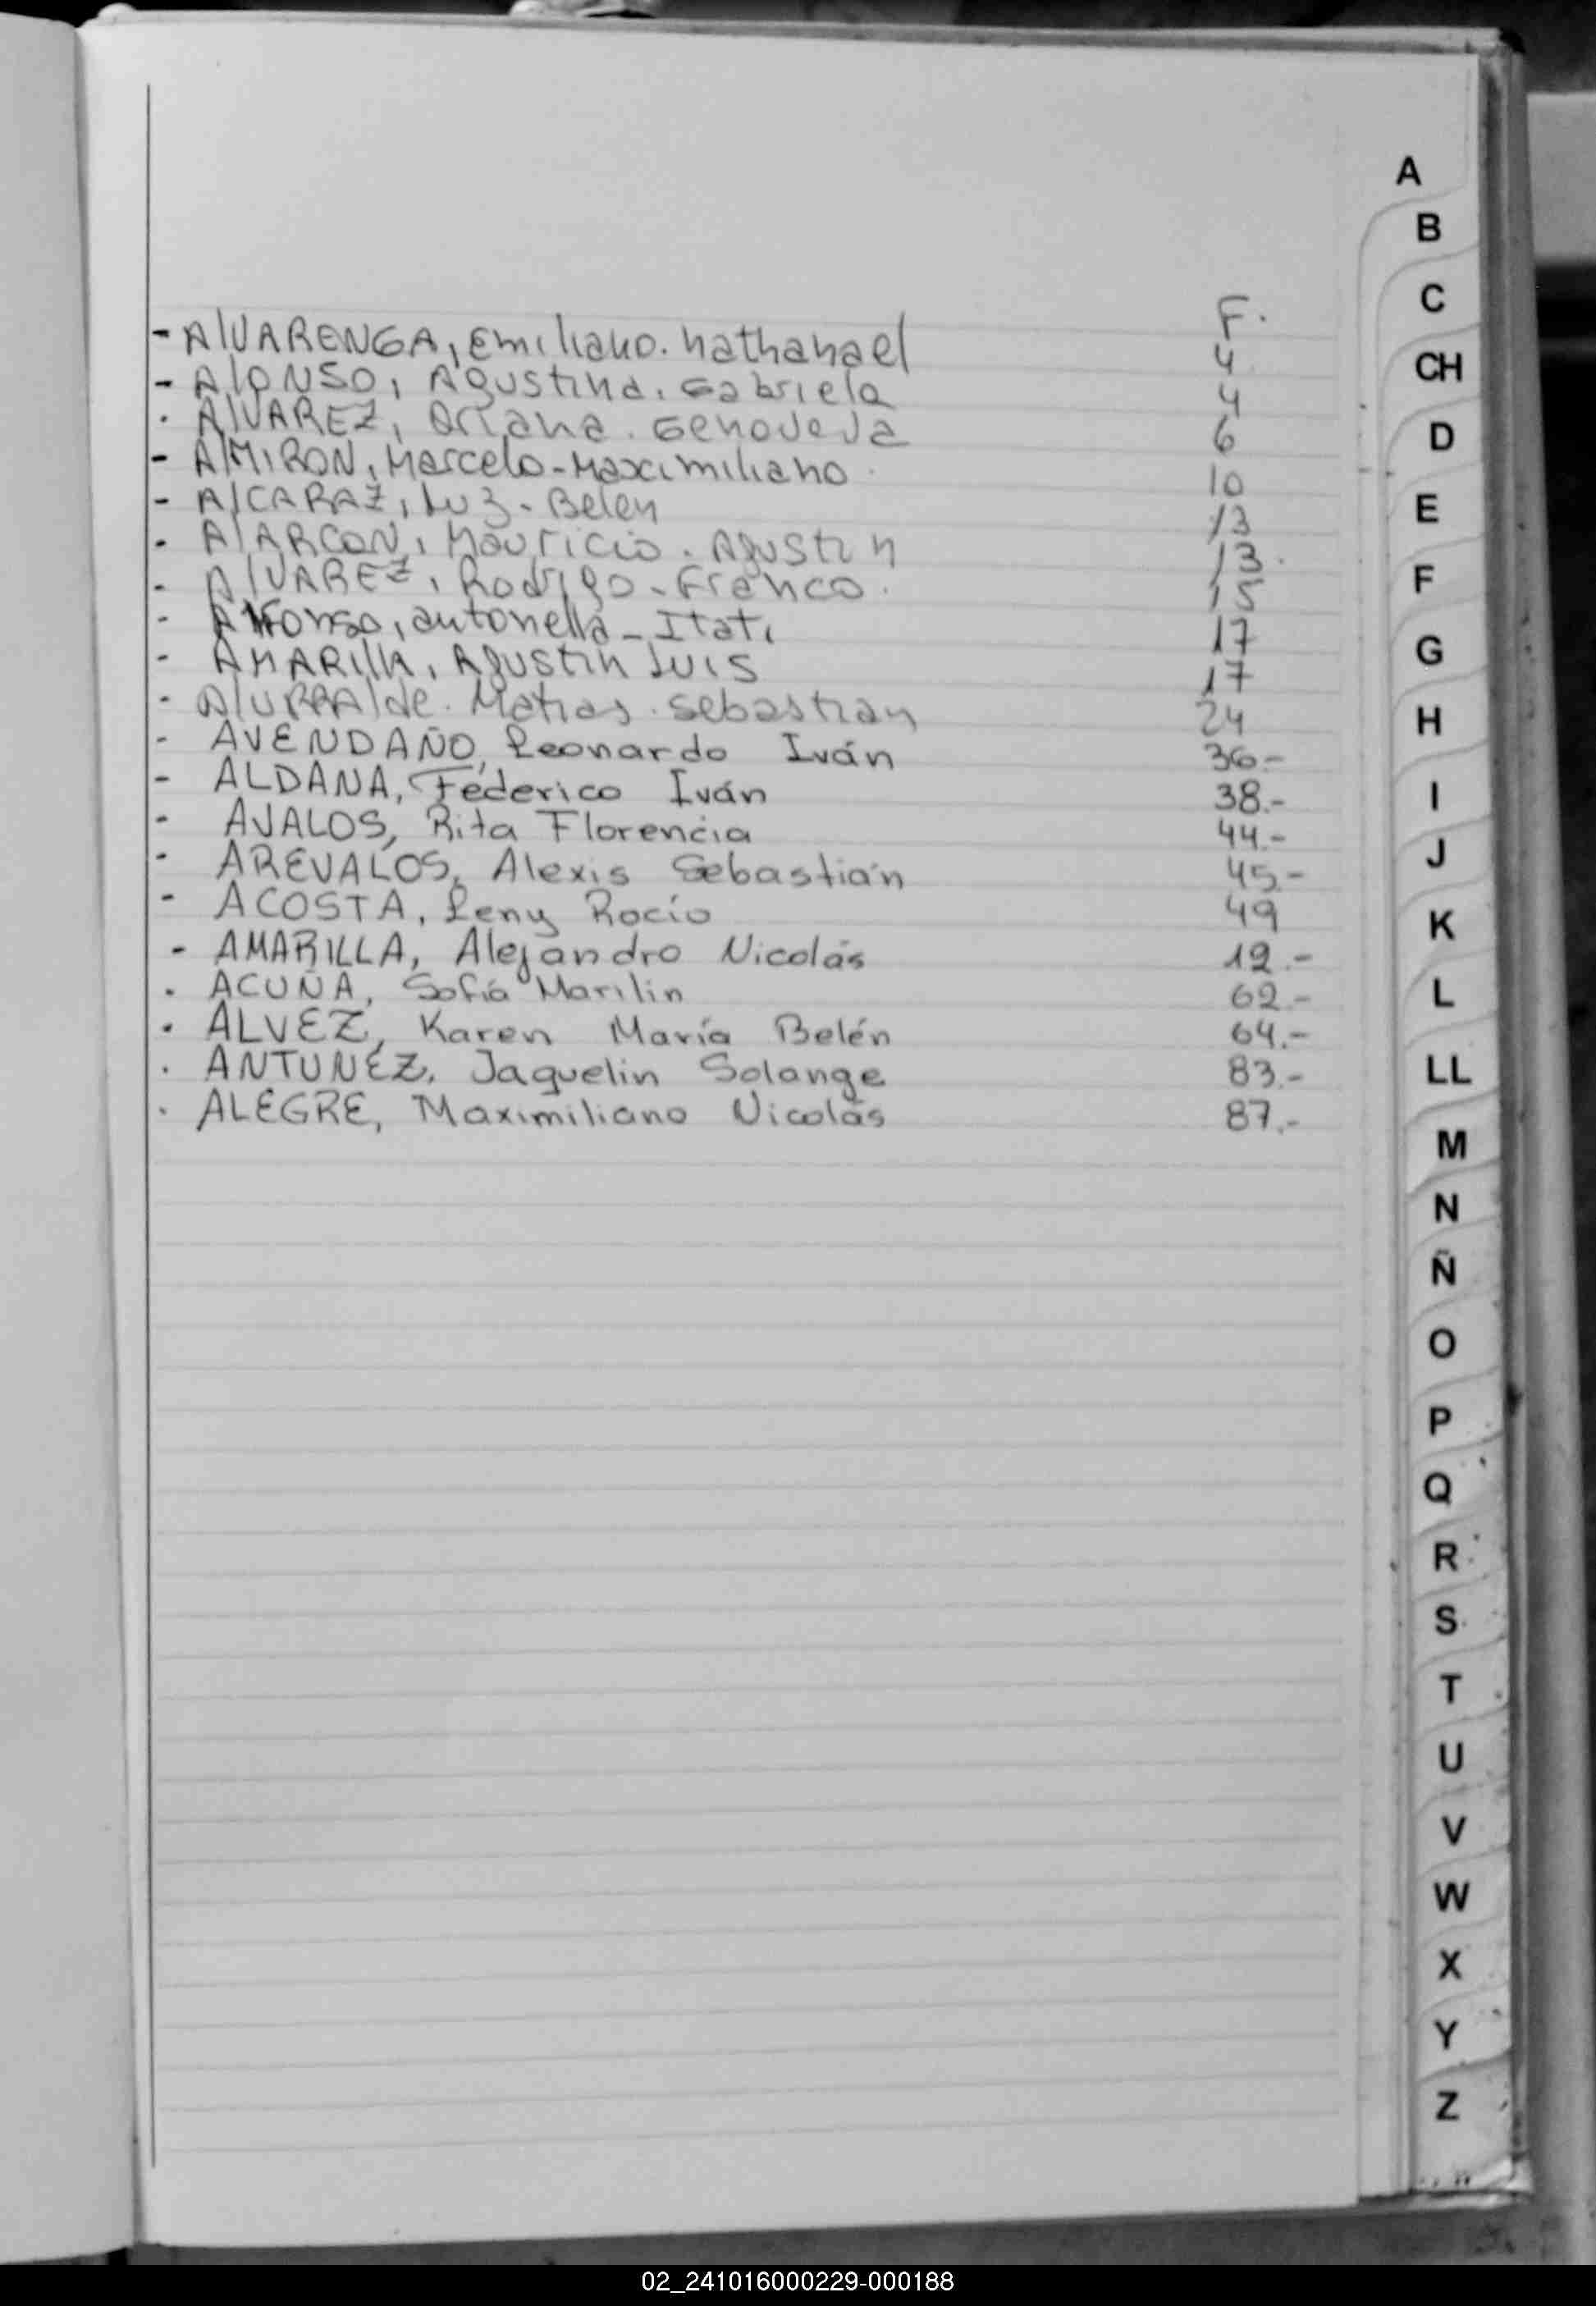 F.
- AlVARENGA, Emiliano. nathanael 4
- AlONSO, Agustina. Gabriela 4
. AlVAREZ, Oriana. Genoveva 6
- AMIRON, Marcelo-Maximiliano. 10
- AlCARAZ, Luz. Belen 13
. AlARCON, Mauricio. Agustin 13.
. AlVAREZ, Rodrigo-Franco. 15
- Alfonso, antonella-Itati 17
- AMARIlla, Agustin Luis 17
- AlURRAlde. Matias. Sebastian 24
- AVENDAÑO, Leonardo Iván 36.-
- ALDANA, Federico Iván 38.-
- AVALOS, Rita Florencia 44.-
- AREVALOS, Alexis Sebastián 45.-
- ACOSTA, Leny Rocío 49
- AMARILLA, Alejandro Nicolás 12.-
. ACUÑA, Sofía Marilin 62.-
. ALVEZ, Karen María Belén 64.-
. ANTUNEZ, Jaquelin Solange 83.-
. ALEGRE, Maximiliano Nicolás 87.-
A
B
C
CH
D
E
F
G
H
I
J
K
L
LL
M
N
Ñ
O
P
Q
R
S
T
U
V
W
X
Y
Z
02_241016000229-000188